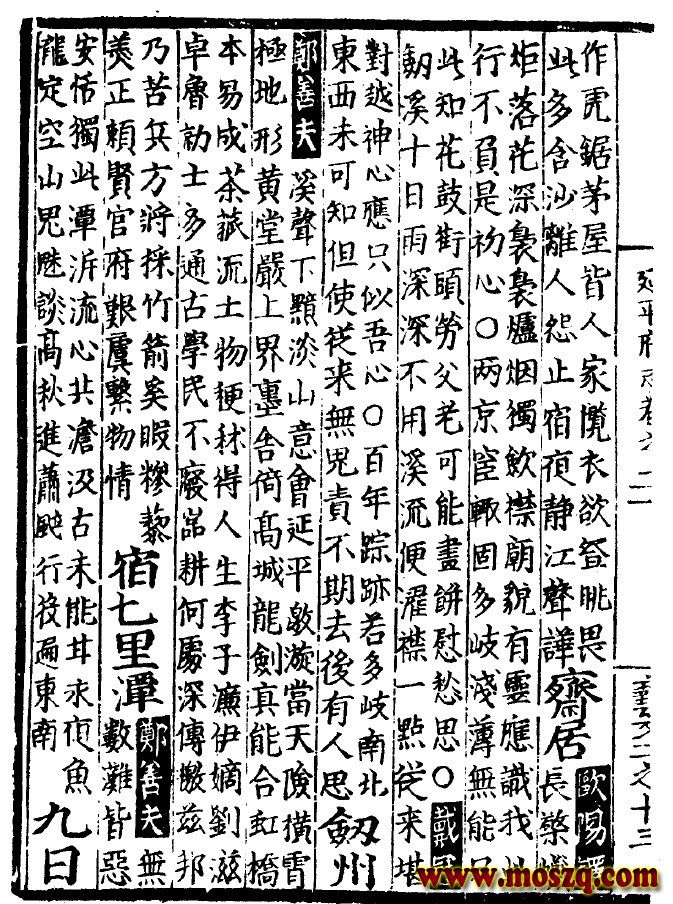 作虎鋸茅屋皆人家攬衣欲登眺畏
此多含沙離人怨止宿夜静江聲譁
齋居
歐陽鐸
長檠
炬落花深裊裊爐烟獨飲襟廟貌有靈應識我此
行不負是初心〇兩京宦轍固多岐淺薄無能只
此知花鼓街頭勞父老可能畫餅慰愁思〇戴
劒溪十日雨深深不用溪流便濯襟一點從来堪
對越神心應只似吾心〇百年踪跡若多岐南北
東西未可知但使從来無鬼責不期去後有人思
劒州
鄭善夫
溪聲下顥淡山意會延平激漩當天險橫雷
極地形黃堂嚴上界舍倚髙城龍劍真能合虹橋
本易成茶蔬流土物粳秫得人生李子濂伊嫡劉滋
卓魯詢士多通古學民不廢嵓耕何處深傳檄兹邦
乃苦兵方將採竹箭奚暇糝藜
羮正賴賢官府艱虞繫物情
宿七里潭
鄭善夫
無
數灘皆惡
安恬獨此潭泝流心共澹汲古未能甘永夜魚
龍定空山鬼魅談髙秋進蕭颯行役遍東南
九日
延平府志卷之二
藝文二之十三
www.moszq.com